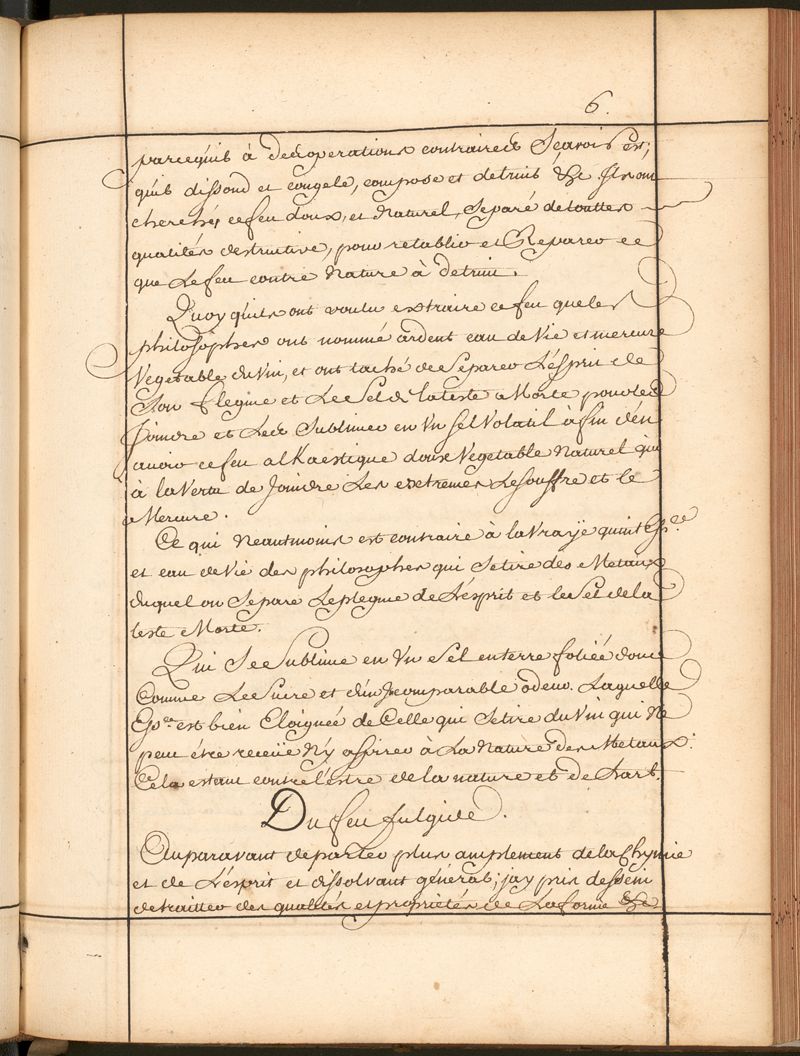 6.
parcequils à des operations contraires Scavoir est;
quils dissoud et congele, compose et detruit &c. Ils ont
cherchés ce feu doux, et Naturel, Separé de touttes
qualités destructive, pour retablir et Reparer ce
que Le feu contre Nature à detruit.
Quoy quils ont voulu extraire ce feu que les
philosophes ont nommé ardent eau de Vie et mercure
Vegetable du Vin, et ont taché de Separer L'esprit de
Son flegme et Le Sel de la teste Morte pour les
Joindre et Les Sublimer en Vn Sel Volatil à fin d'en
avoir ce feu alKaestique doux Vegetable Naturel qui
à la Vertu de Joindre Les extremes Le souffre et le
Mercure.
Ce qui Neantmoins est contraire à la Vraÿe quint Ess.ce
et eau de Vie des philosophes qui Se tire des Metaux
duquel on Separe Le plegme de L'esprit et le Sel de la
teste Morte.
Qui Se Sublime en Vn Sel en terre foliée douce
Comme Le Sucre et d'un Jncomparable odeur. Laquelle
Ess.ce est bien Eloignée de Celle qui Se tire du Vin qui Ne
peut étre receüe N'y assirer à La Nature des Metaux.
Cela estant contre l'estre de la nature et de L'art.
Du feu fulgide.
Auparavant de parler plus amplement de la Chymie
et de L'esprit et dissolvant général; jay pris dessein
de traitter des qualités et proprietés de La forme &c